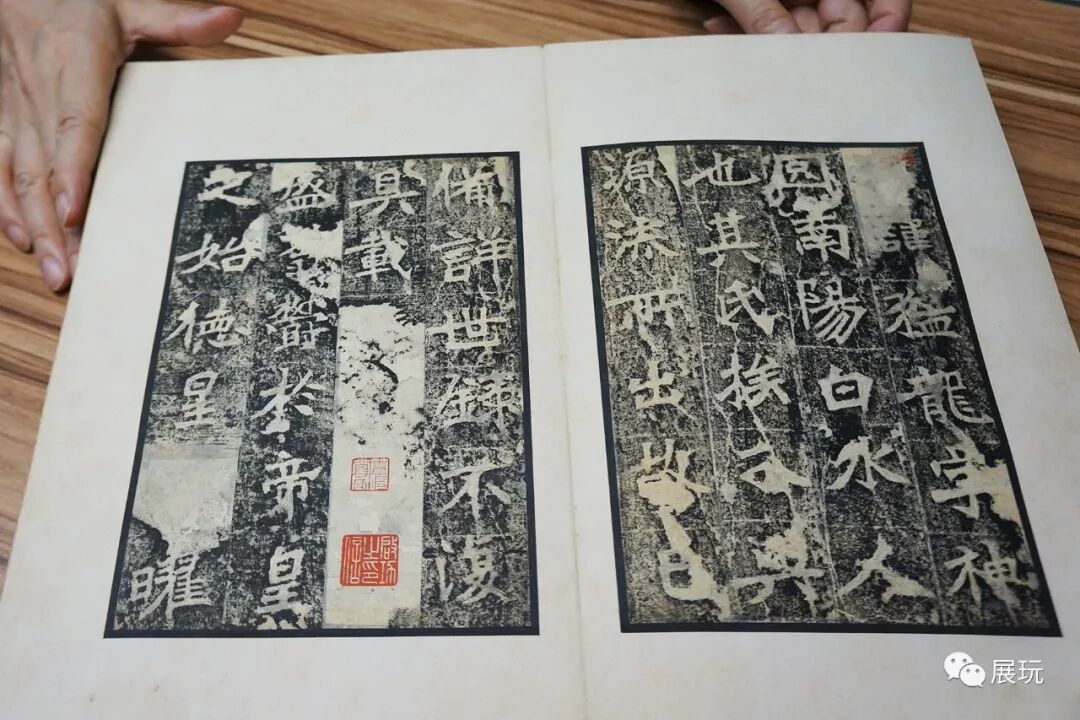 諱猛龍字神
囧南陽白水人
也其氏族分興
源流所出故已
俻詳世録不復
具載
盛於帝皇
之始徳星曜
展玩